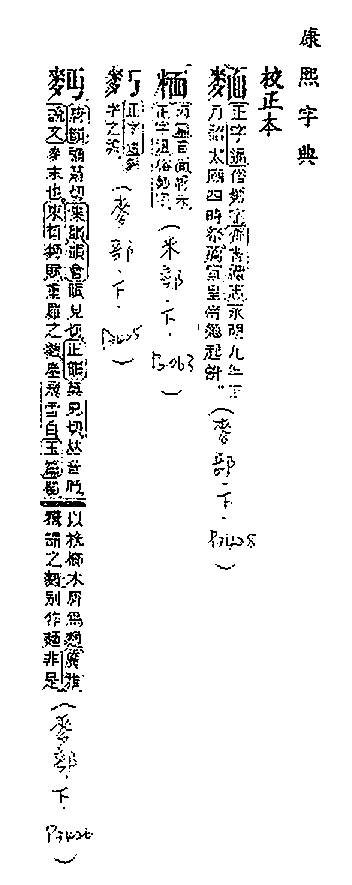 康熙字典
校正本
麵 正字通俗麪字南齊書禮志永明九年正
月詔太廟四時祭薦宣皇帝麵起餅。(麥部.下.
糆 正字通俗麪字 (米部.下.P2063)
麫 正字通麪
字之譌 (麥部.下.
麪 唐韻彌箭切集韻韻會眠見切正韻莫見切𠀤音眄
說文麥末也束皙麪賦重羅之麪塵飛雪白玉篇蜀
以桄榔木屑爲麪廣雅
謂之麪別作麵非是 (麥部.下.